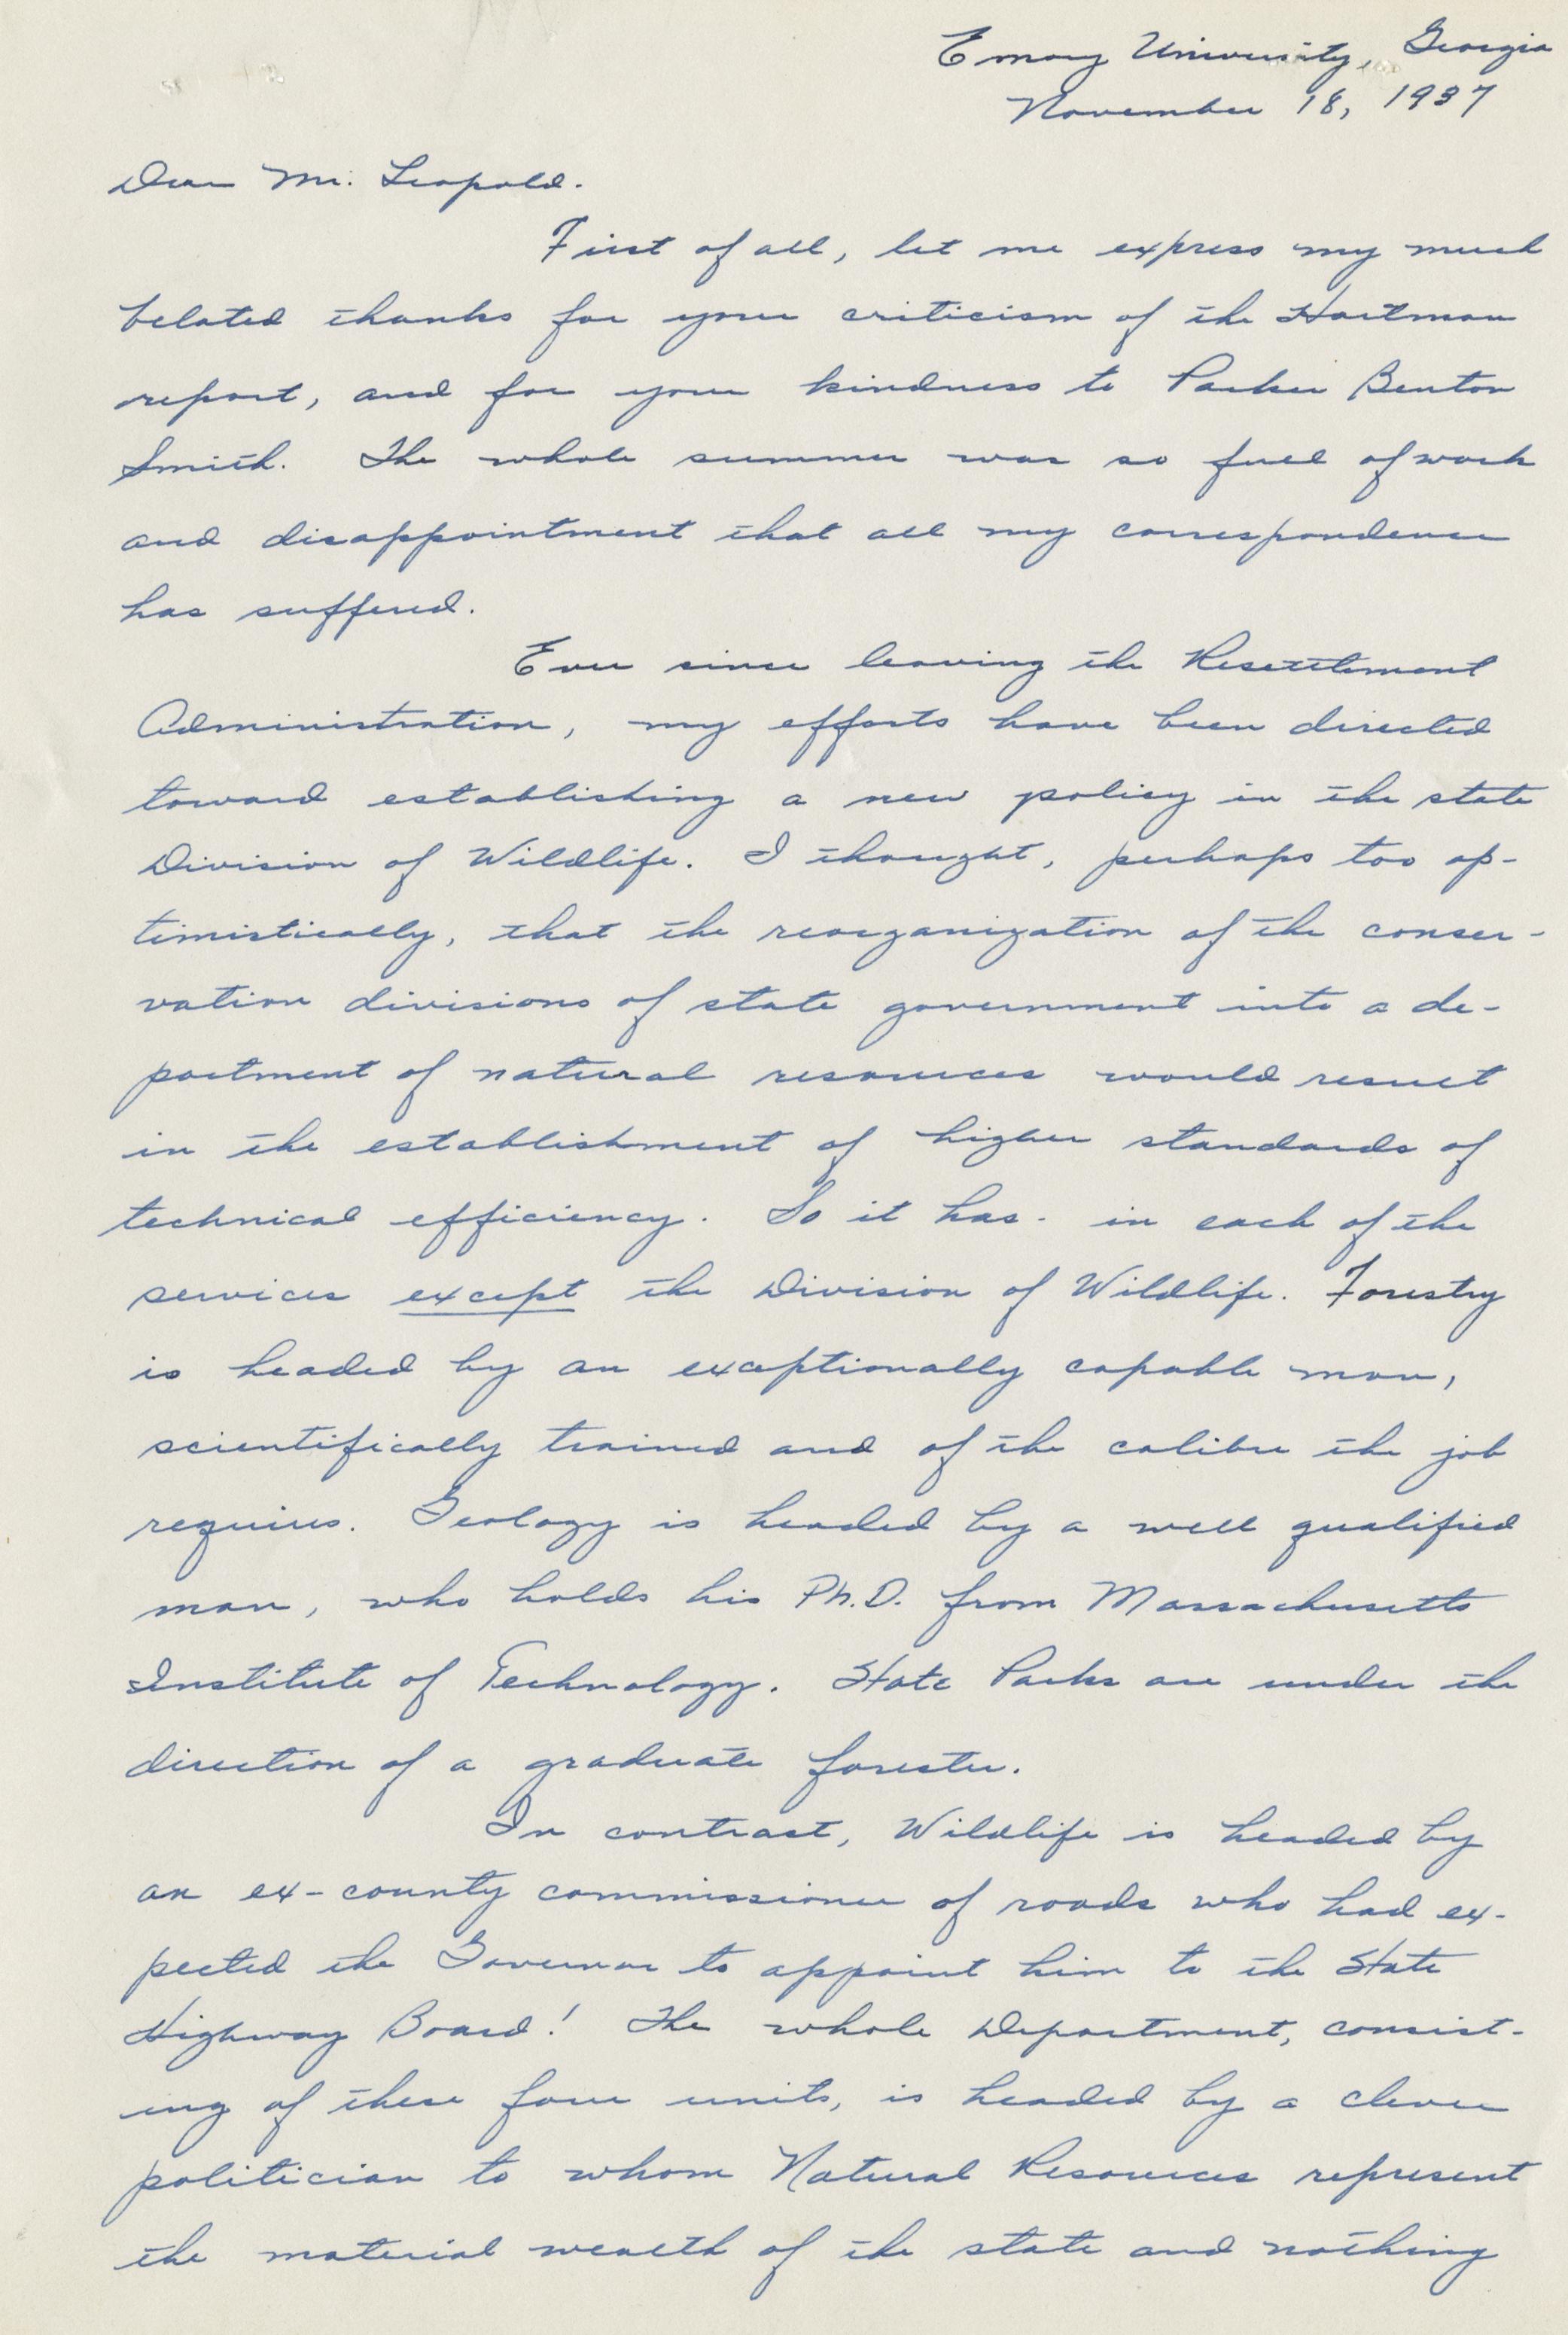 Emory University, Georgia
November 18, 1937
Dear Mr. Leopold.
First of all, let me express my much
belated thanks for your criticism of the Hartman
report, and for your kindness to Parker Benton
Smith. The whole summer was so full of work
and disappointment that all my correspondence
has suffered.
Ever since leaving the Resettlement
Administration, my efforts have been directed
toward establishing a new policy in the state
Division of Wildlife. I thought, perhaps too op-
timistically, that the reorganization of the conser-
vation divisions of state government into a de-
partment of natural resources would result
in the establishment of higher standards of
technical efficiency. So it has - in each of the
services except the Division of Wildlife. Forestry
is headed by an exceptionally capable man,
scientifically trained and of the calibre the job
requires. Geology is headed by a well qualified
man, who holds his Ph.D. from Massachusetts
Institute of Technology. State Parks are under the
direction of a graduate forester.
In contrast, Wildlife is headed by
an ex-county commissioner of roads who had ex-
pected the Governor to appoint him to the State
Highway Board! The whole Department, consist-
ing of these four units, is headed by a clever
politician to whom Natural Resources represent
the material wealth of the state and nothing